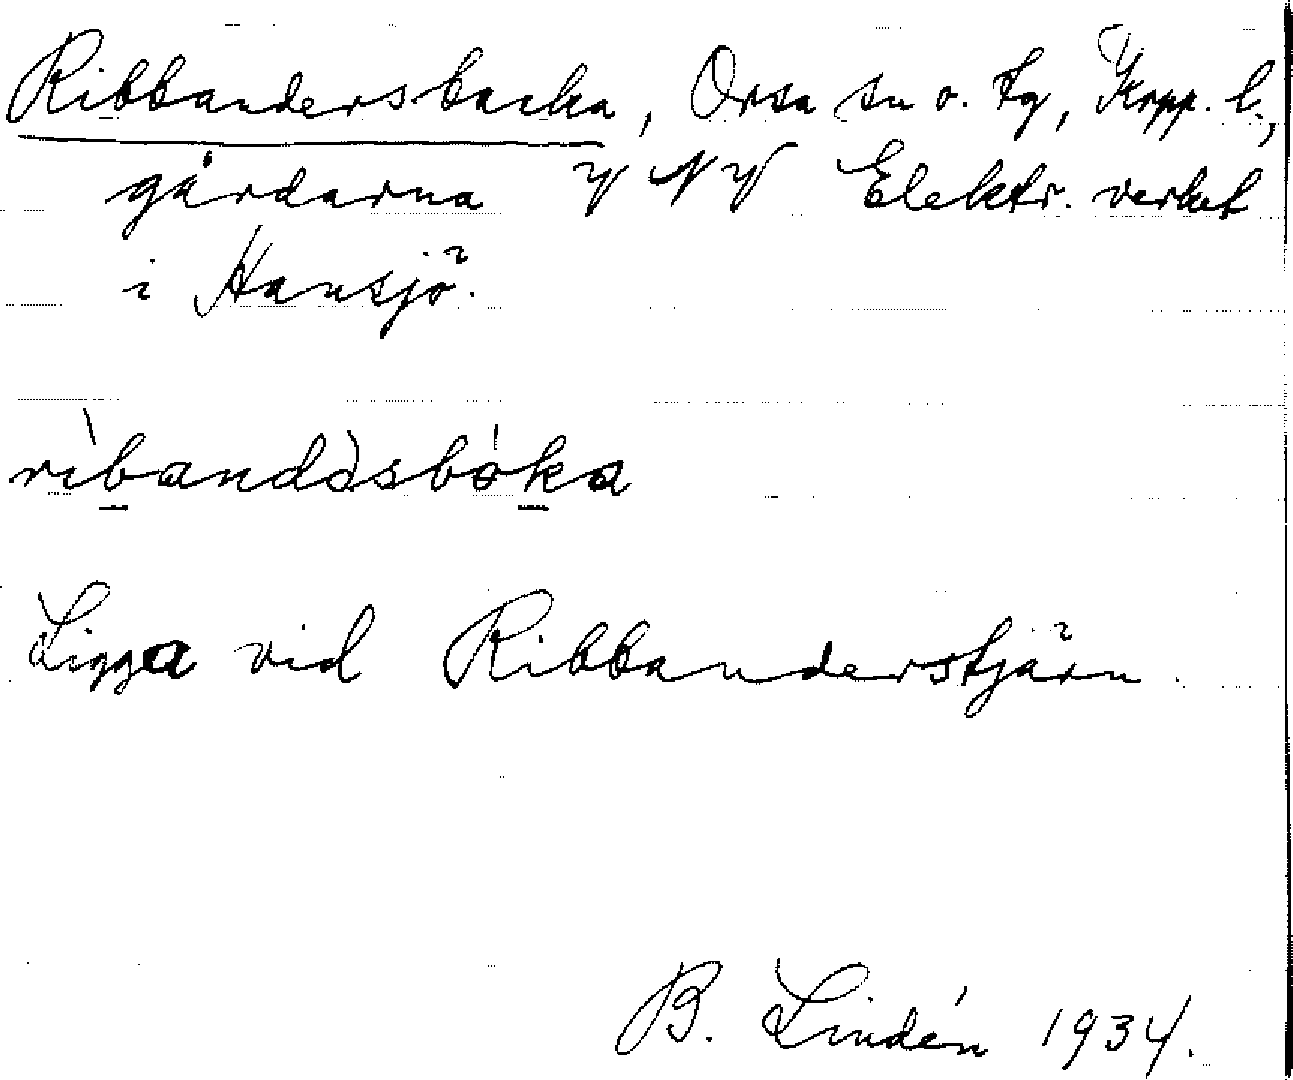 Ribbandersbacka, Orsa sn o. tg, Kopp. l.,
gårdarna V NV Elektr. verket
i Hansjö.
rìbandə̀sbɑ́ka
Ligga vid Ribbanderstjärn.
B. Lindén 1934.